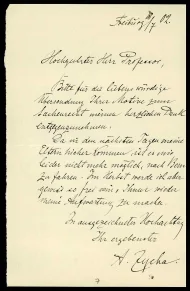 Freiburg 10/7 02.
Hochgeehrter Herr Professor,
Bitte für die liebenswürdige
Übersendung Ihrer Motive zum
Sachenrecht meinen herzlichsten Dank
entgegenzunehmen.
Da in den nächsten Tagen meine
Eltern hieher kommen, ist es mir
leider nicht mehr möglich, nach Bonn
zu fahren. Im Herbst werde ich aber
gewiß so frei sein, Ihnen wieder
meine Aufwartung zu machen.
In ausgezeichneter Hochachtung
Ihr ergebenster
A. Zycha.